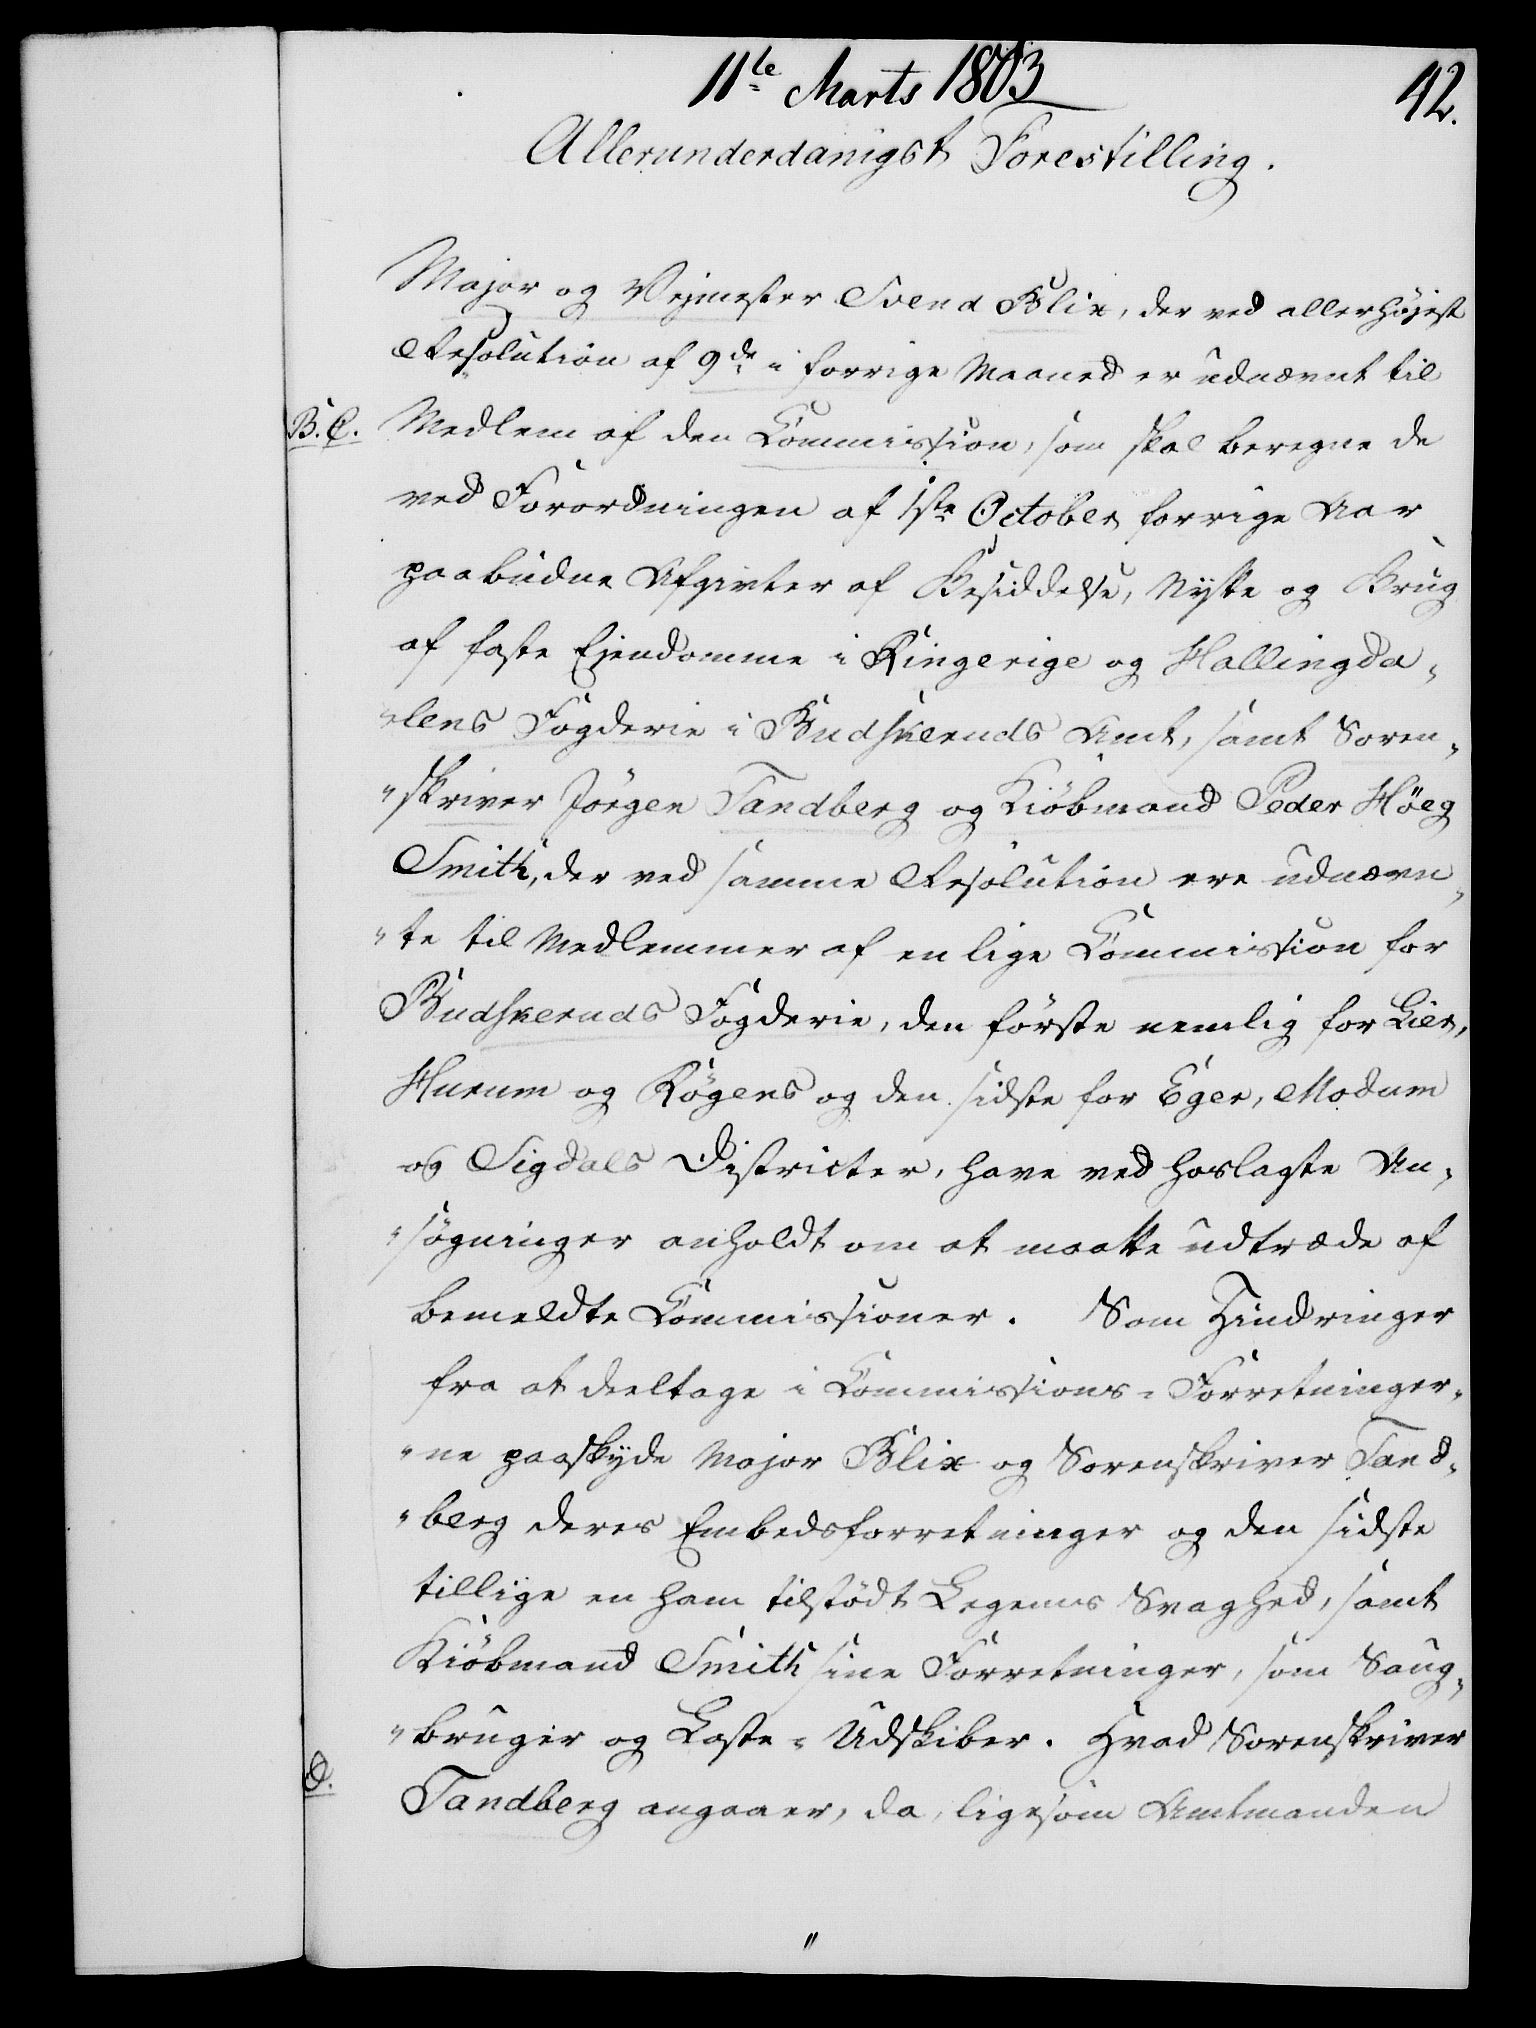 11te Marts 1803
42.
Allerunderdanigst Forestilling.
Major og Vejmester Svend Blix, der ved allerhöjest
Resolution af 9de i forrige Maaned er udnævnt til
B. C. Medlem af den Commission, som skal beregne de
ved Forordningen af 1ste October forrige Aar
paabudne Afgivter af Besiddelse, Nytte og Brug
af faste Ejendomme i Ringerige og Hallingda„
„lens Fogderie i Budskeruds Amt, samt Soren„
„skriver Jörgen Tandberg og Kiöbmand Peder Höeg
Smith, der ved samme Resolution ere udnævn„
„te til Medlemmer af en lige Commission for
Budskeruds Fogderie, den förste nemlig for Lier,
Hurum og Rögens og den sidste for Eger, Modum
og Sigdals Districter, have ved hoslagte An„
„sögninger anholdt om at maatte udtræde af
bemeldte Commissioner. Som Hindringer
fra at deeltage i Commissions-Forretninger„
„ne paaskyde Major Blix og Sorenskriver Tand„
„berg deres Embedsforretninger og den sidste
tillige en ham tilstödt Legems Svaghed, samt
Kiöbmand Smith sine Forretninger, som Saug„
„bruger og Laste-Udskiber. Hvad Sorenskriver
D. Tandberg angaaer, da, ligesom Amtmanden
"